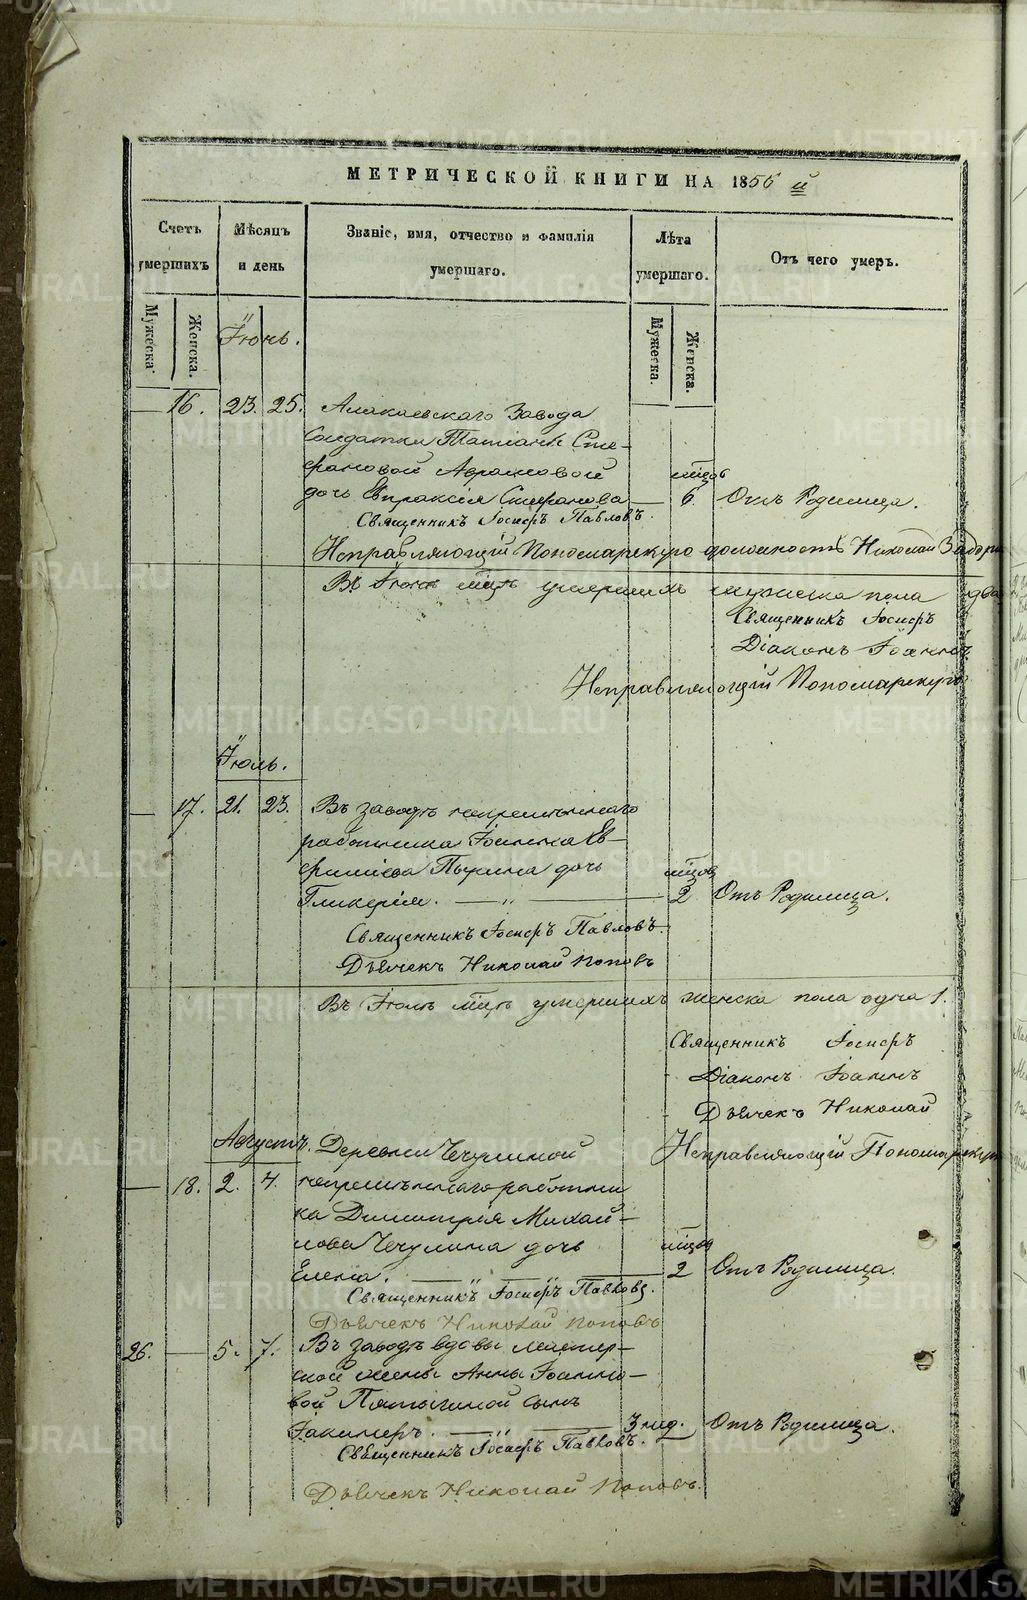 МЕТРИЧЕСКОЙ КНИГИ НА 1856 й
Счетъ умершихъ
Мѣсяцъ и день
Званіе, имя, отчество и фамилія умершаго.
Лѣта умершаго.
Отъ чего умеръ.
Мужеска.
Женска.
Мужеска.
Женска.
Іюнь.
16. 23. 25. Завода
Солдатки Татіаны Сте-
фановой
дочь Евпраксія 6. Отъ Родимца.
Священникъ Іосифъ Павловъ.
Исправляющій Пономарскую должность Николай
Въ Іюнѣ мцѣ умершихъ мужеска пола два
Священникъ Іосифъ
Діаконъ Іоаннъ
Исправляющій Пономарскую
Іюль.
17. 21. 23. Въ заводѣ непремѣннаго
работника Іоанна Ев-
фиміева дочь мцов
Гликерія. — „ — 2 Отъ Родимца.
Священникъ Іосифъ Павловъ.
Дьячекъ Николай Поповъ
Въ Іюлѣ мцѣ умершихъ женска пола одна 1.
Священникъ Іосифъ
Діаконъ Іоаннъ
Дьячекъ Николай
Исправляющій Пономарскую
Августъ. Деревни Чечулиной
18. 2. 4. непремѣннаго работни
ка Димитрія Михай-
лова Чечулина дочь мцов
Елена. — „ — „ — 2 Отъ Родимца.
Священникъ Іосифъ Павловъ.
Дьячекъ Николай Поповъ
26. — 5. 7. Въ заводѣ вдовы мастер-
ской жены Анны Іоанно-
вой Пятыгиной сынъ
— „ — 3 нед. Отъ Родимца.
Священникъ Іосифъ Павловъ.
Дьячекъ Николай Поповъ.
METRIKI.GASO-URAL.RU